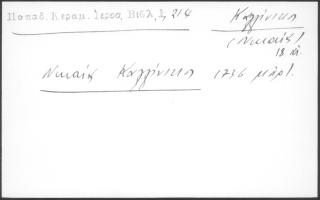 Παπαδ. Κεραμ. Ιεροσ. Βιβλ. 1, 214
Καλλίνικος
(Νικαίας)
18 αἰ.
Νικαίας Καλλίνικος 1736 μάρτ.